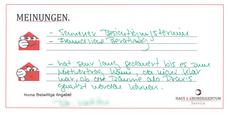 MEINUNGEN.
- Besichtigungstermine
- Freundliche Beratung
- hat sehr lang gedauert bis es zum
Mietvertrag kam, da nicht klar
war, ob die Räume als Praxis
genutzt werden können.
Keine Beteiligte Angabe!
HAUS & GRUNDEIGENTUM
Service